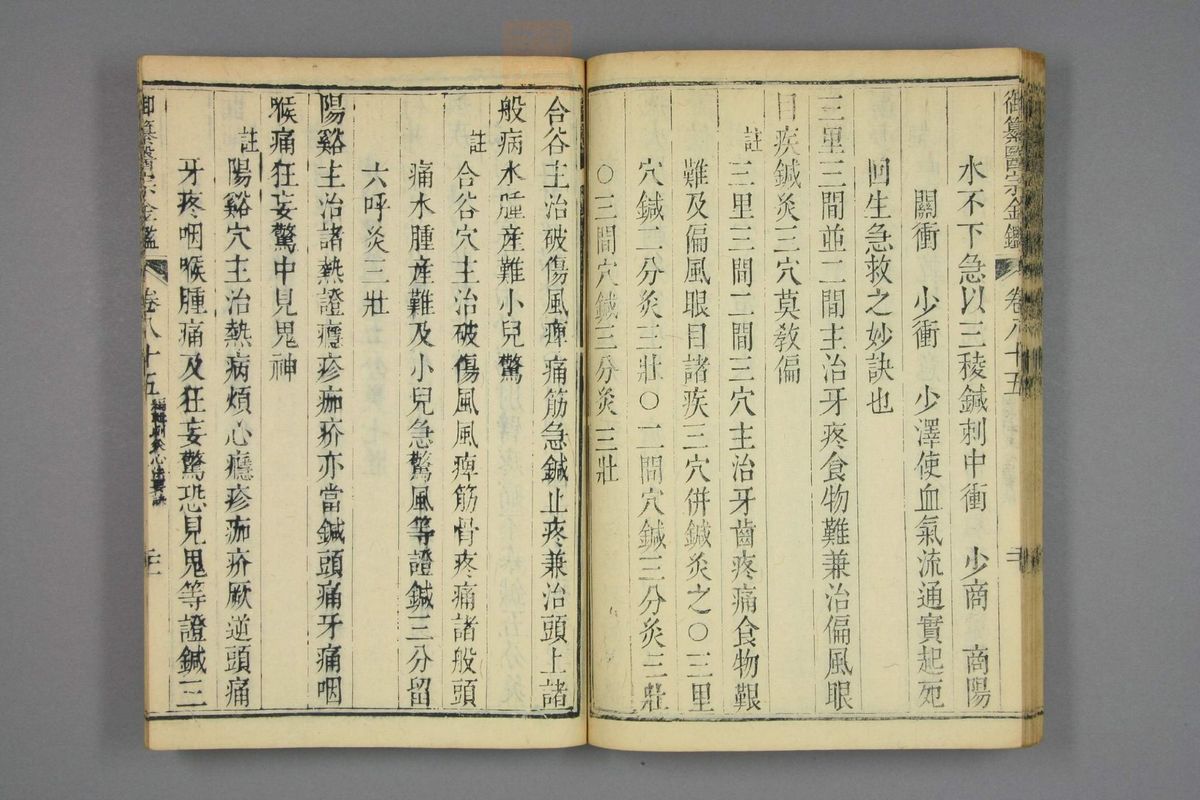 御纂醫宗金鑑 卷八十五
水不下急以三稜鍼刺中衝 少商 商陽
關衝 少衝 少澤使血氣流通實起死
回生急救之妙訣也
三里三間並二間主治牙疼食物難兼治偏風眼
目疾鍼灸三穴莫教偏
註 三里三間二間三穴主治牙齒疼痛食物艱
難及偏風眼目諸疾三穴併鍼灸之○三里
穴鍼二分灸三壯○二間穴鍼三分灸三壯
○三間穴鍼三分灸三壯
合谷主治破傷風痺痛筋急鍼止疼兼治頭上諸
般病水腫産難小兒驚
註 合谷穴主治破傷風風痺筋骨疼痛諸般頭
痛水腫産難及小兒急驚風等證鍼三分留
六呼灸三壯
陽谿主治諸熱證癮疹痂疥亦當鍼頭痛牙痛咽
喉痛狂妄驚中見鬼神
註 陽谿穴主治熱病煩心癮疹痂疥厥逆頭痛
牙疼咽喉腫痛及狂妄驚恐見鬼等證鍼三
御纂醫宗金鑑 卷八十五 編輯刺灸心法要訣